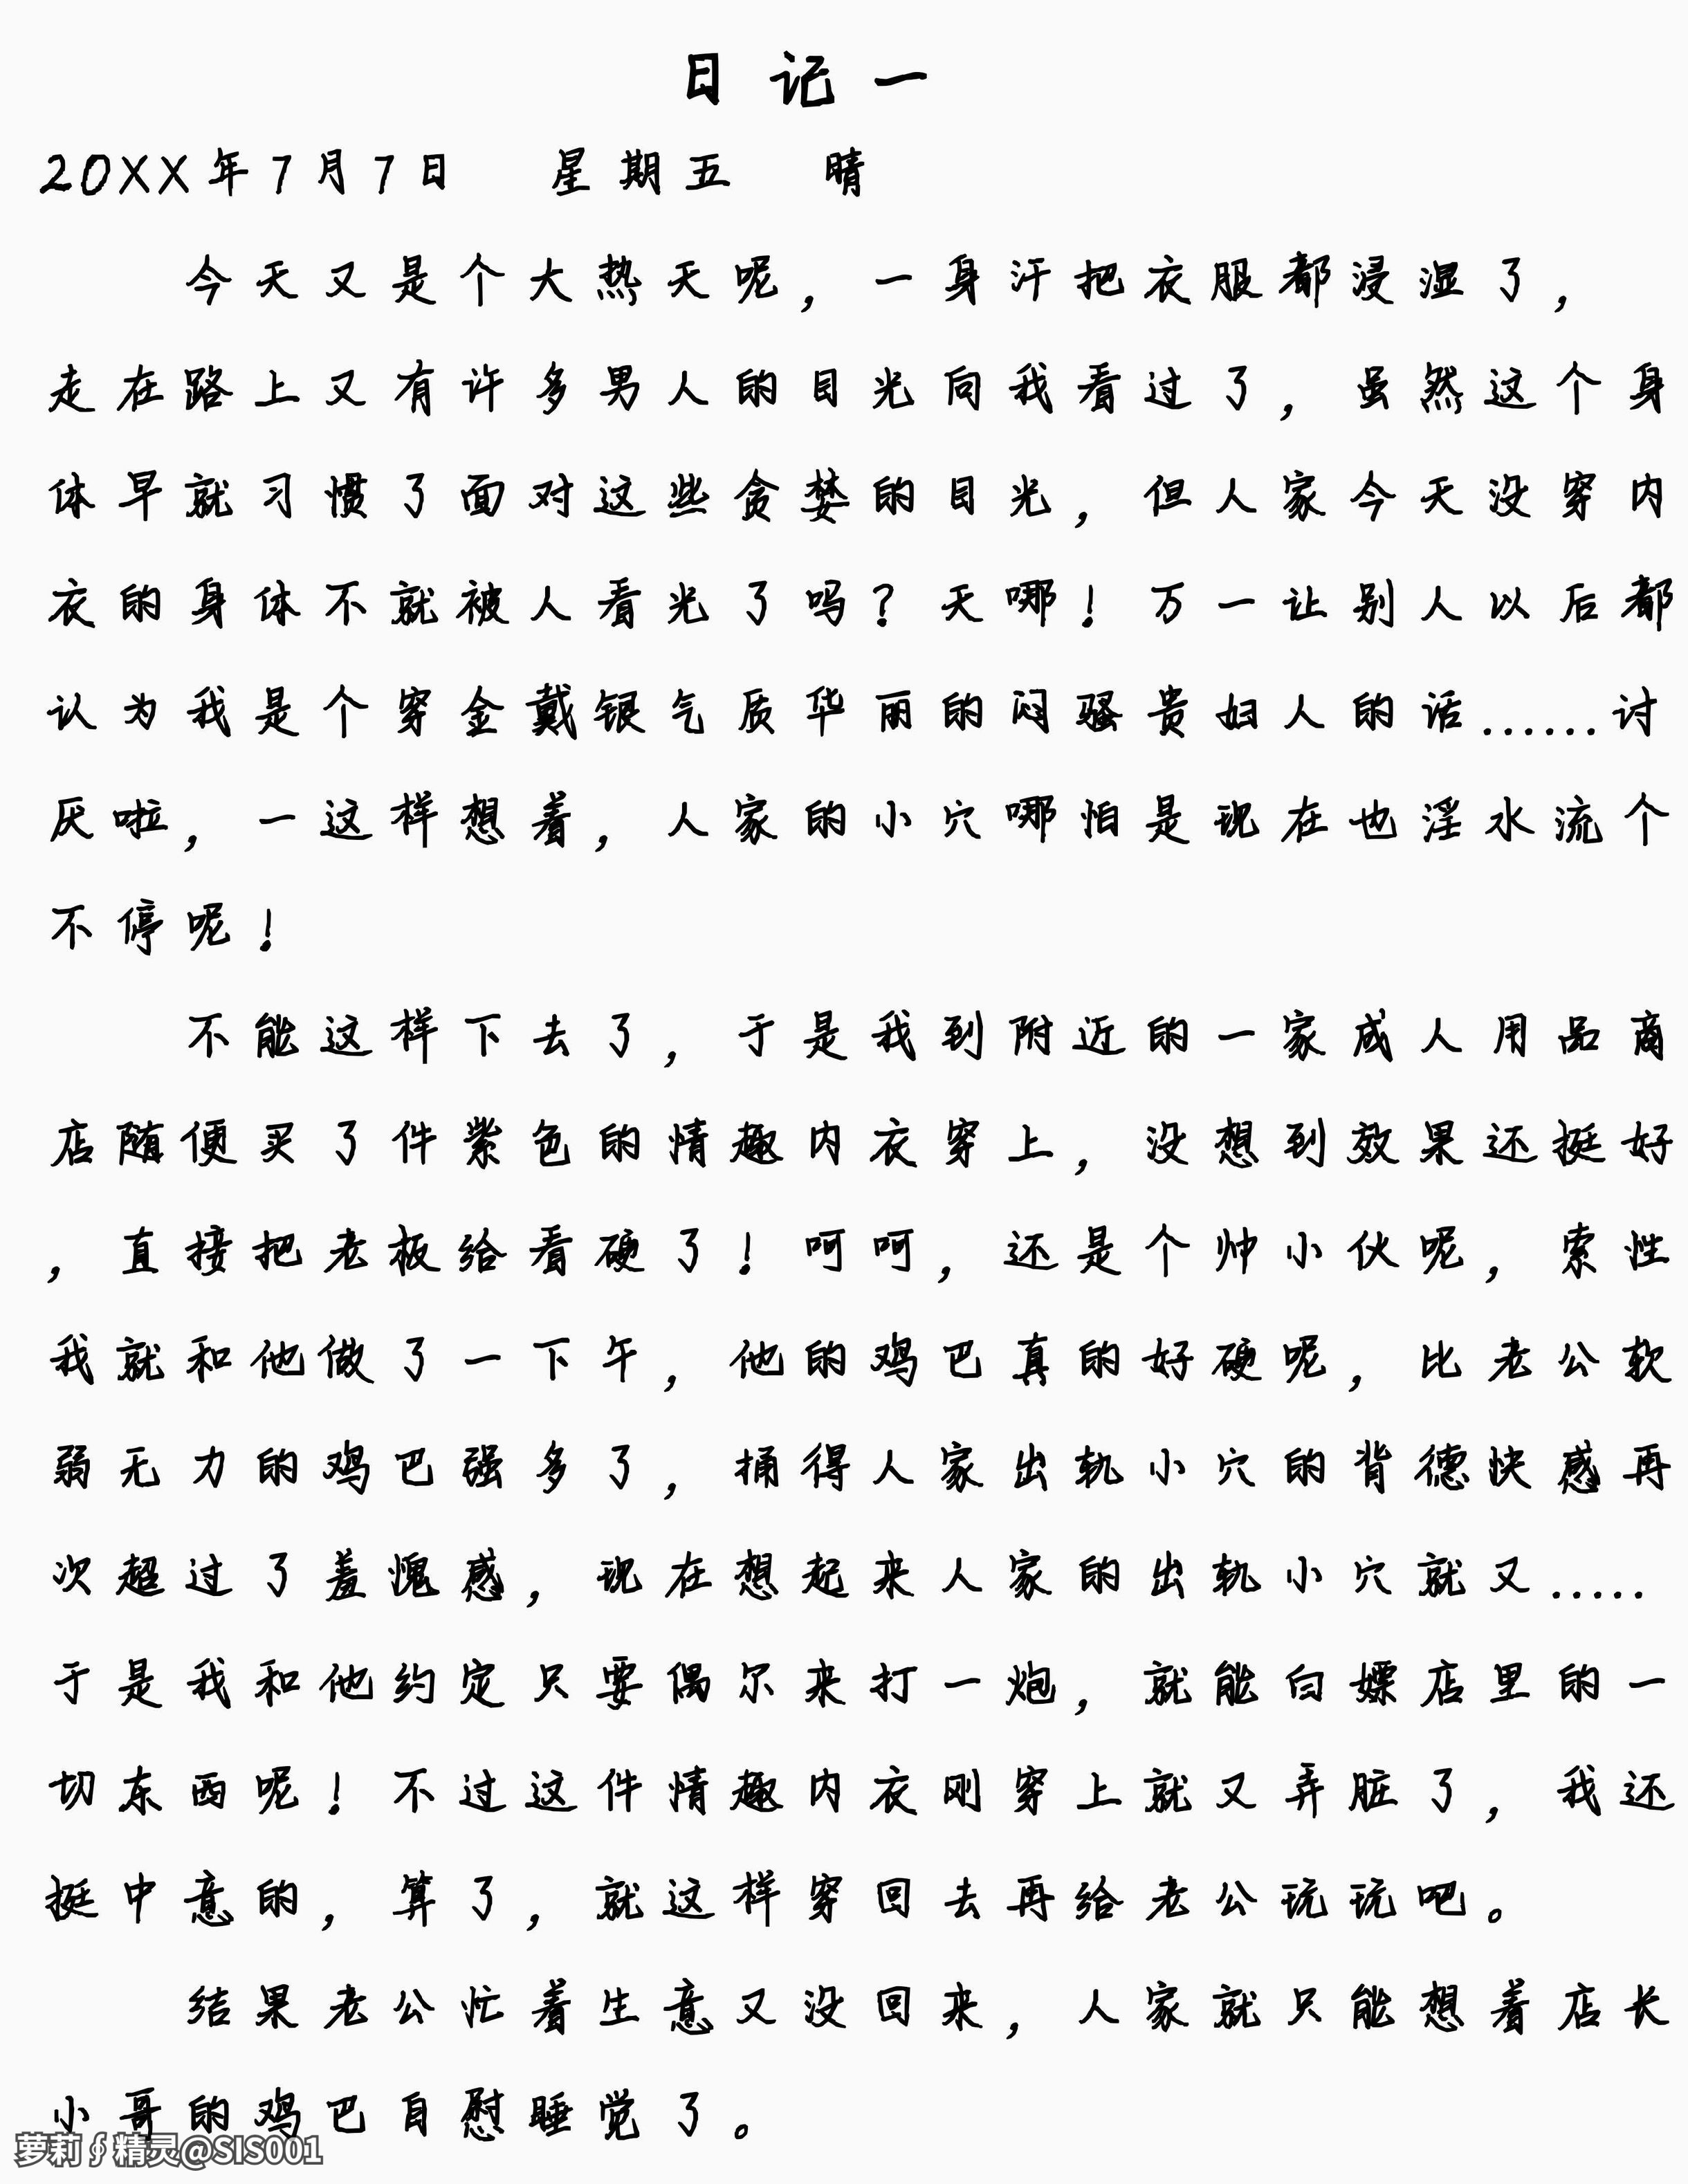 日记一
20XX年7月7日 星期五 晴
今天又是个大热天呢，一身汗把衣服都浸湿了，
走在路上又有许多男人的目光向我看过了，虽然这个身
体早就习惯了面对这些贪婪的目光，但人家今天没穿内
衣的身体不就被人看光了吗？天哪！万一让别人以后都
认为我是个穿金戴银气质华丽的闷骚贵妇人的话……讨
厌啦，一这样想着，人家的小穴哪怕是现在也淫水流个
不停呢！
不能这样下去了，于是我到附近的一家成人用品商
店随便买了件紫色的情趣内衣穿上，没想到效果还挺好
，直接把老板给看硬了！呵呵，还是个帅小伙呢，索性
我就和他做了一下午，他的鸡巴真的好硬呢，比老公软
弱无力的鸡巴强多了，捅得人家出轨小穴的背德快感再
次超过了羞愧感，现在想起来人家的出轨小穴就又.....
于是我和他约定只要偶尔来打一炮，就能白嫖店里的一
切东西呢！不过这件情趣内衣刚穿上就又弄脏了，我还
挺中意的，算了，就这样穿回去再给老公玩玩吧。
结果老公忙着生意又没回来，人家就只能想着店长
小哥的鸡巴自慰睡觉了。
萝莉∮精灵@SIS001